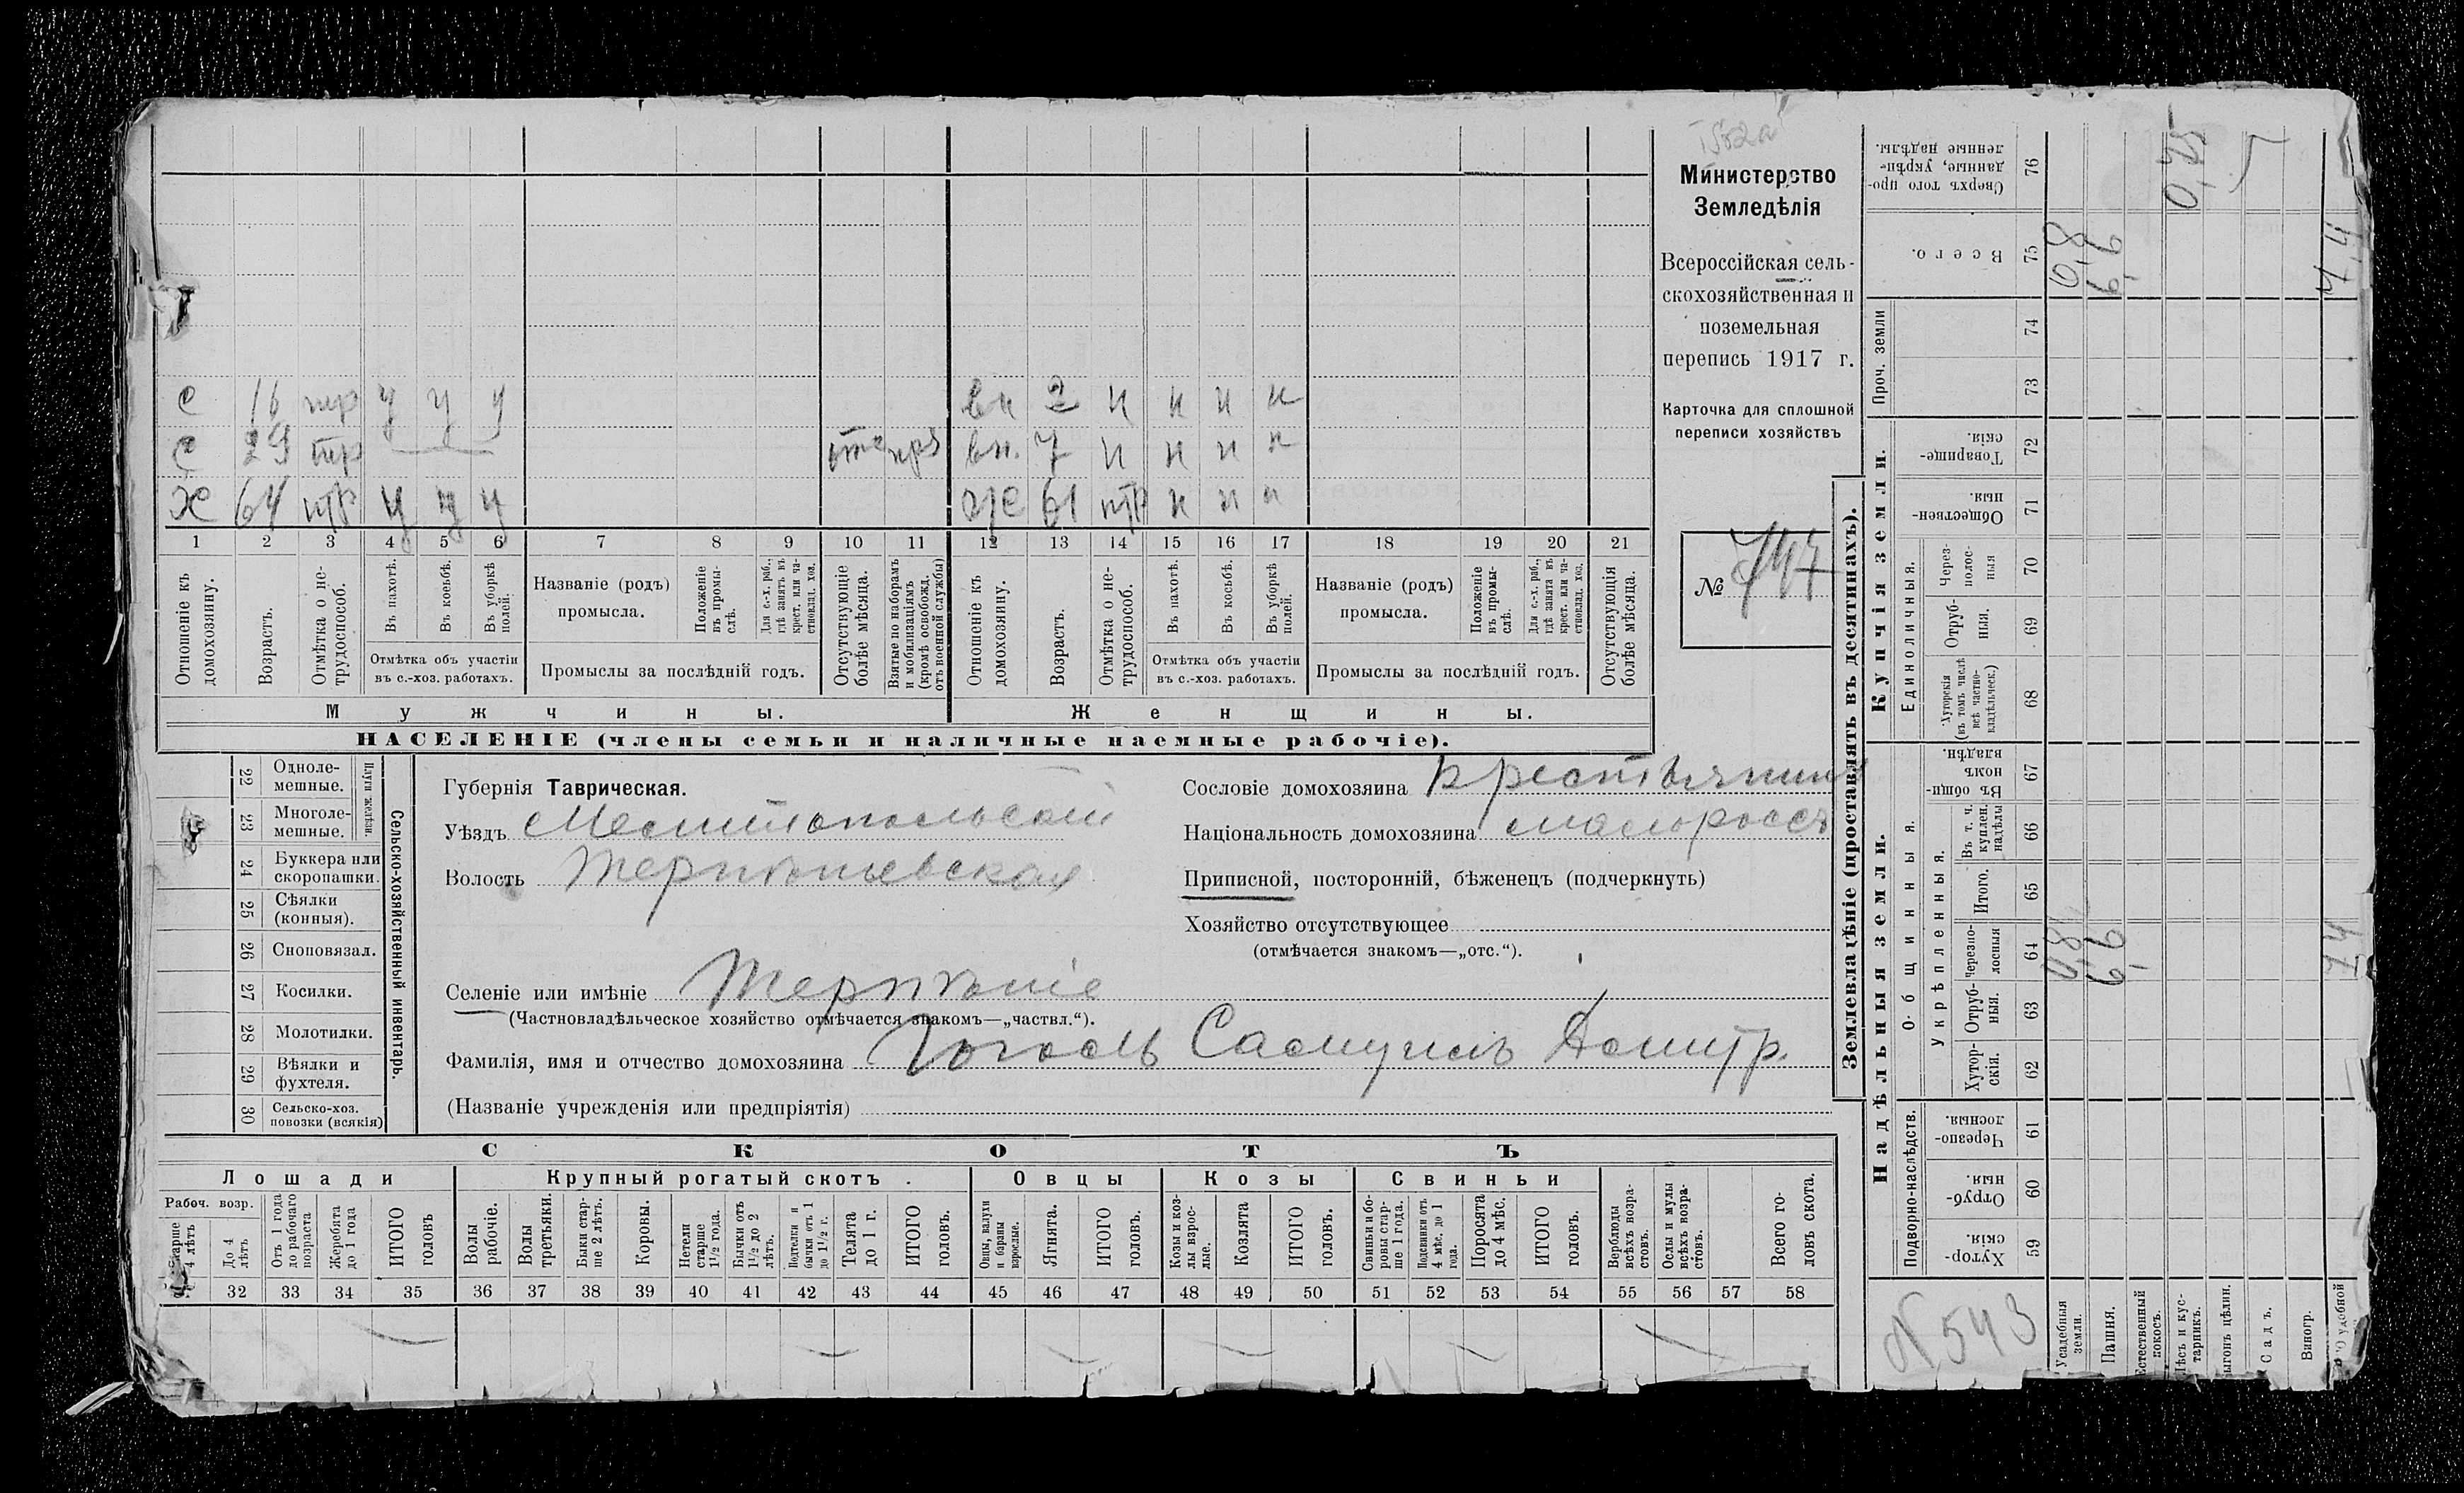 Министерство
Земледѣлія
Всероссійская сель-
скохозяйственная и
поземельная
перепись 1917 г.
Карточка для сплошной
переписи хозяйствъ
№ 747
с 16 тр у у у вн 2 н н н н
с 29 тр вн. 7 н н н н
х 64 тр у у у же 61 тр н н н
1 2 3 4 5 6 7 8 9 10 11 12 13 14 15 16 17 18 19 20 21
Отношеніе къ домохозяину.
Возрастъ.
Отмѣтка о не-трудоспособ.
Въ пахотѣ.
Въ косьбѣ.
Въ уборкѣ полей.
Отмѣтка объ участіи
въ с.-хоз. работахъ.
Названіе (родъ)
промысла.
Положеніе въ промы-слѣ.
Для с.-х. раб., гдѣ занятъ въ крест. или ча-стновлад. хоз.
Промыслы за послѣдній годъ.
Отсутствующіе болѣе мѣсяца.
Взятые по наборамъ и мобилизаціямъ (кромѣ освобожд. отъ военной службы)
Отношеніе къ домохозяину.
Возрастъ.
Отмѣтка о не-трудоспособ.
Въ пахотѣ.
Въ косьбѣ.
Въ уборкѣ полей.
Отмѣтка объ участіи
въ с.-хоз. работахъ.
Названіе (родъ)
промысла.
Положеніе въ промы-слѣ.
Для с.-х. раб., гдѣ занята въ крест. или ча-стновлад. хоз.
Промыслы за послѣдній годъ.
Отсутствующія болѣе мѣсяца.
Мужчины. Женщины.
НАСЕЛЕНІЕ (члены семьи и наличные наемные рабочіе).
22 Одноле-мешные.
23 Многоле-мешные.
24 Буккера или скоропашки.
25 Сѣялки (конныя).
26 Сноповязал.
27 Косилки.
28 Молотилки.
29 Вѣялки и фухтеля.
30 Сельско-хоз. повозки (всякія)
Сельско-хозяйственный инвентарь.
Губернія Таврическая.
Уѣздъ Мелитопольскій
Волость Терпѣньевская
Селеніе или имѣніе Терпѣніе
(Частновладѣльческое хозяйство отмѣчается знакомъ—„частвл.“).
Фамилія, имя и отчество домохозяина Гоголь Самуилъ Дмитр.
(Названіе учрежденія или предпріятія)
Сословіе домохозяина крестьянинъ
Національность домохозяина малороссъ
Приписной, посторонній, бѣженецъ (подчеркнуть)
Хозяйство отсутствующее
(отмѣчается знакомъ—„отс.“).
СКОТЪ
Лошади Крупный рогатый скотъ. Овцы Козы Свиньи
Рабоч. возр.
Старше 4 лѣтъ
До 4 лѣтъ
Отъ 1 года до рабочаго возраста
Жеребята до 1 года
ИТОГО головъ
Волы рабочіе.
Волы третьяки.
Быки стар-ше 2 лѣтъ.
Коровы.
Нетели старше 1½ года.
Бычки отъ 1½ до 2 лѣтъ.
Подтелки и бычки отъ 1 до 1½ г.
Телята до 1 г.
ИТОГО головъ.
Овцы, валухи и бараны взрослые.
Ягнята.
ИТОГО головъ.
Козы и коз-лы взрос-лые.
Козлята
ИТОГО головъ.
Свиньи и бо-ровы стар-ше 1 года.
Подсвинки отъ 4 мѣс. до 1 года.
Поросята до 4 мѣс.
ИТОГО головъ.
Верблюды всѣхъ возра-стовъ.
Ослы и мулы всѣхъ возра-стовъ.
Всего го-ловъ скота.
32 33 34 35 36 37 38 39 40 41 42 43 44 45 46 47 48 49 50 51 52 53 54 55 56 57 58
Землевладѣніе (проставлять въ десятинахъ).
Сверхъ того про-данные, укрѣп-ленные надѣлы. 76 0,25
Всего. 75 0,8 6,6 7,4
Проч. земли 74 73
Купчія земли.
Товарище-скія. 72
Обществен-ныя. 71
Единоличныя.
Через-полос-ныя 70
Отруб-ныя. 69
Хуторскія (въ томъ числѣ всѣ частно-владѣльческ.) 68
Надѣльныя земли.
Общинныя.
Въ общи-номъ владѣн. 67
Укрѣпленныя.
Въ т. ч. куплен. надѣлы 66
Итого. 65
Черезпо-лосныя 64 0,8 6,6 7,4
Отруб-ныя. 63
Хутор-скія. 62
Подворно-наслѣдств.
Черезпо-лосныя. 61
Отруб-ныя. 60
Хутор-скія. 59
N 543
Усадебныя земли.
Пашня.
Естественный покосъ.
Лѣсъ и кус-тарникъ.
Садъ.
Виногр.